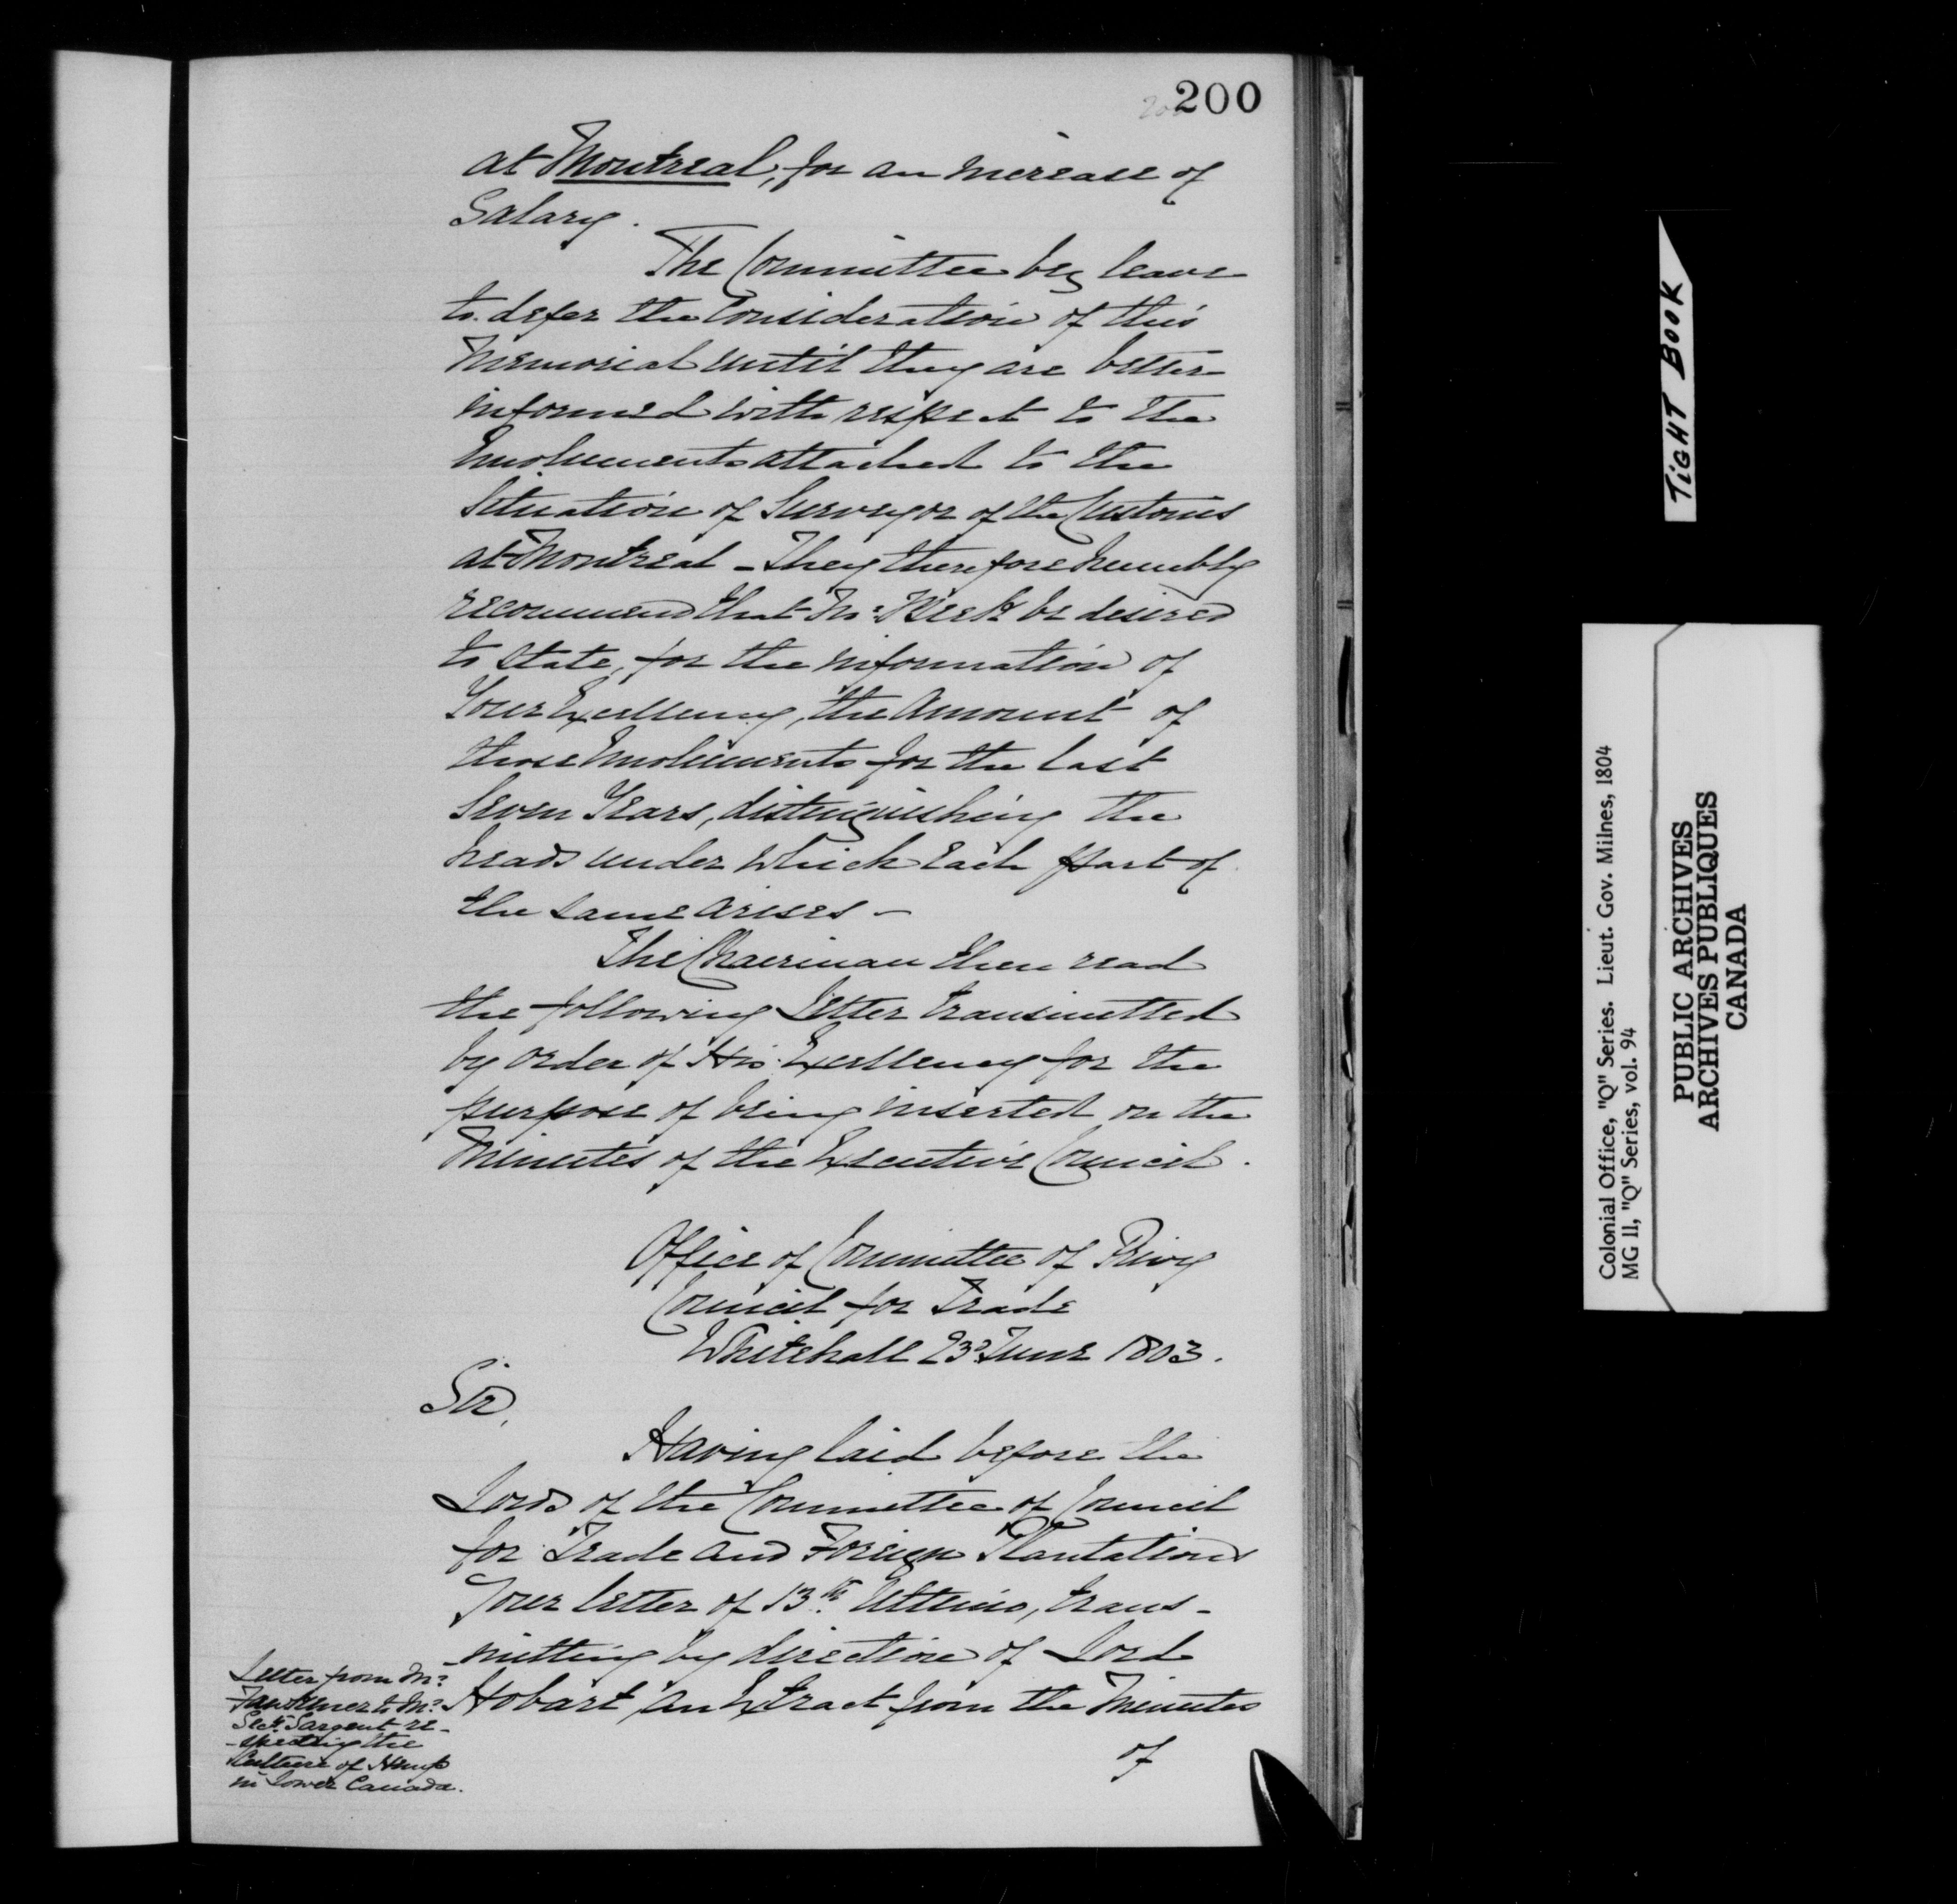 200
at Montreal, for an increase of
Salary.
The Committee beg leave
to defer the Consideration of this
Memorial until they are better
informed with respect to the
Emoluments attached to the
Situation of Surveyor of the Customs
at Montreal - They therefore humbly
recommend that Mr. be desired
to state, for the information of
Your Excellency, the Amount of
those Emoluments for the last
Seven Years, distinguishing the
heads under which each part of
the same arises -
The Chairman then read
the following Letter transmitted
by order of His Excellency for the
purpose of being inserted on the
Minutes of the Executive Council.
Office of Committee of Privy
Council for Trade
Whitehall 23d June 1803.
Sir,
Having laid before the
Lords of the Committee of Council
for Trade and Foreign Plantations
Your letter of 13th Ultimo, trans-
-mitting by direction of Lord
Hobart, an Extract from the Minutes
of
Letter from Mr.
Fawkener to Mr.
Secy. Sargent re-
-specting the
Culture of Hemp
in Lower Canada.
TIGHT BOOK
Colonial Office, "Q" Series. Lieut. Gov. Milnes, 1804
MG 11, "Q" Series, vol. 94
PUBLIC ARCHIVES
ARCHIVES PUBLIQUES
CANADA